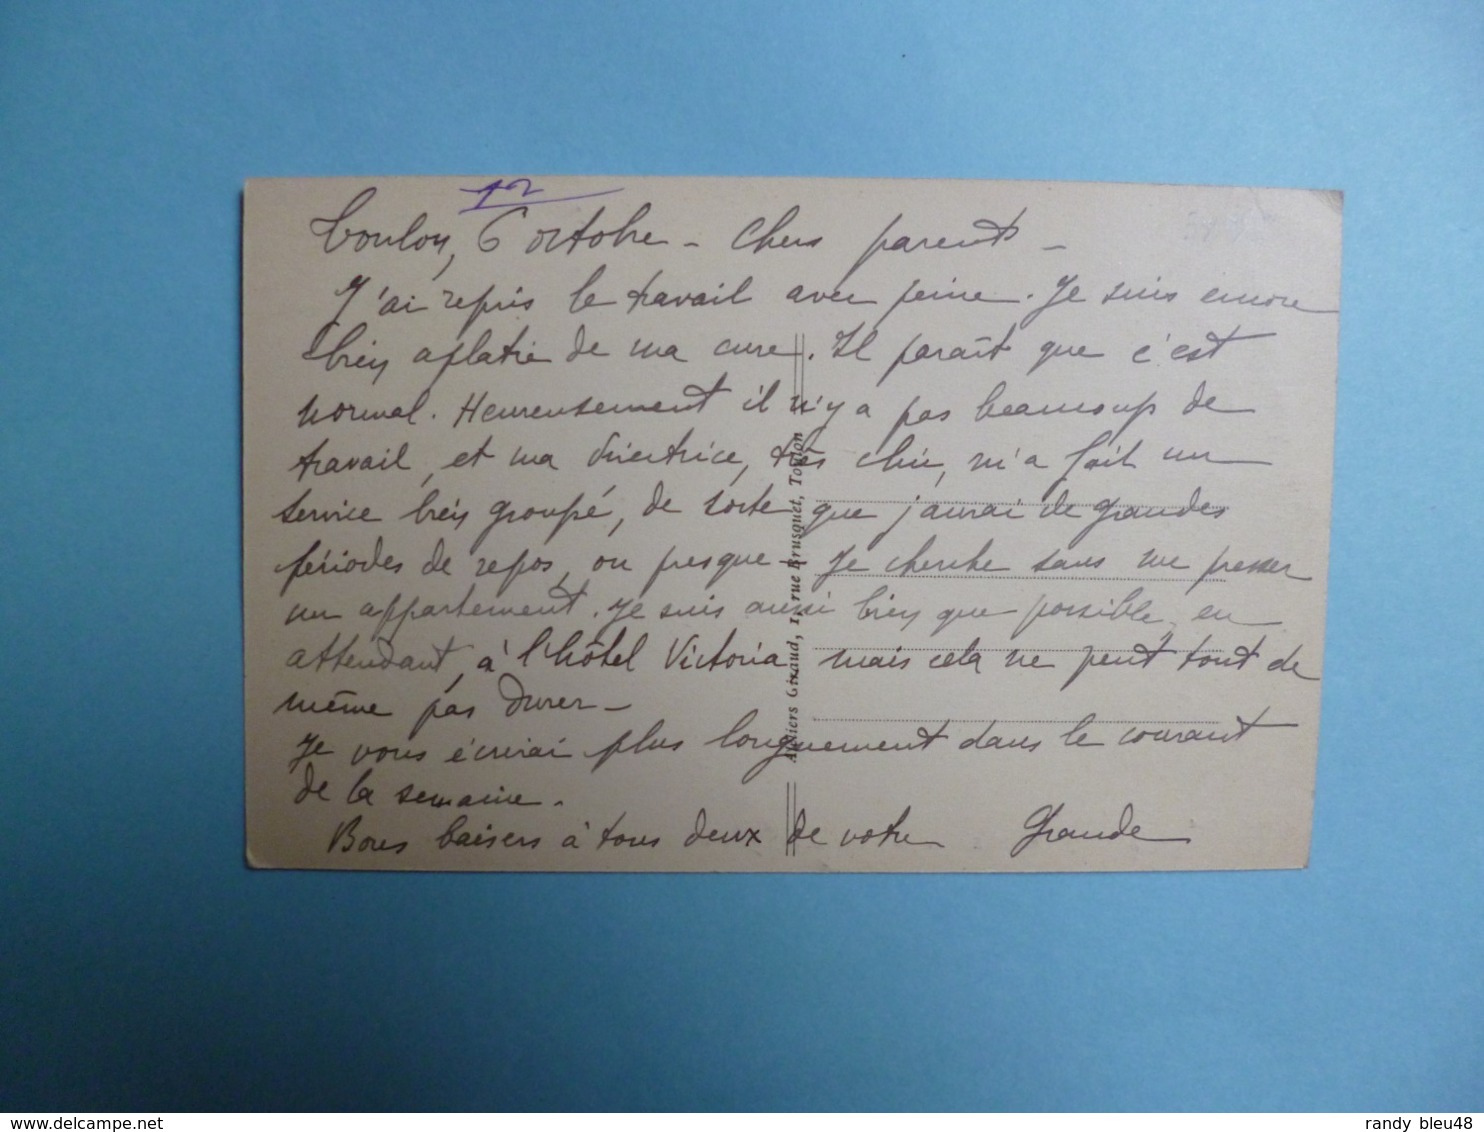 12
Toulon, 6 octobre - Chers parents -
J'ai repris le travail avec peine. Je suis encore
bien aplatie de ma cure. Il paraît que c'est
normal. Heureusement il n'y a pas beaucoup de
travail, et ma directrice, très chic, m'a fait un
service bien groupé, de sorte que j'aurai de grandes
périodes de repos, ou presque - Je cherche sans me presser
un appartement. Je suis aussi bien que possible, en
attendant, à l'hôtel Victoria, mais cela ne peut tout de
même pas durer -
Je vous écrirai plus longuement dans le courant
de la semaine.
Bons baisers à tous deux de votre Grande
Ateliers Giraud, 1, rue Brusquet, Toulon
delcampe.net
randy bleu48